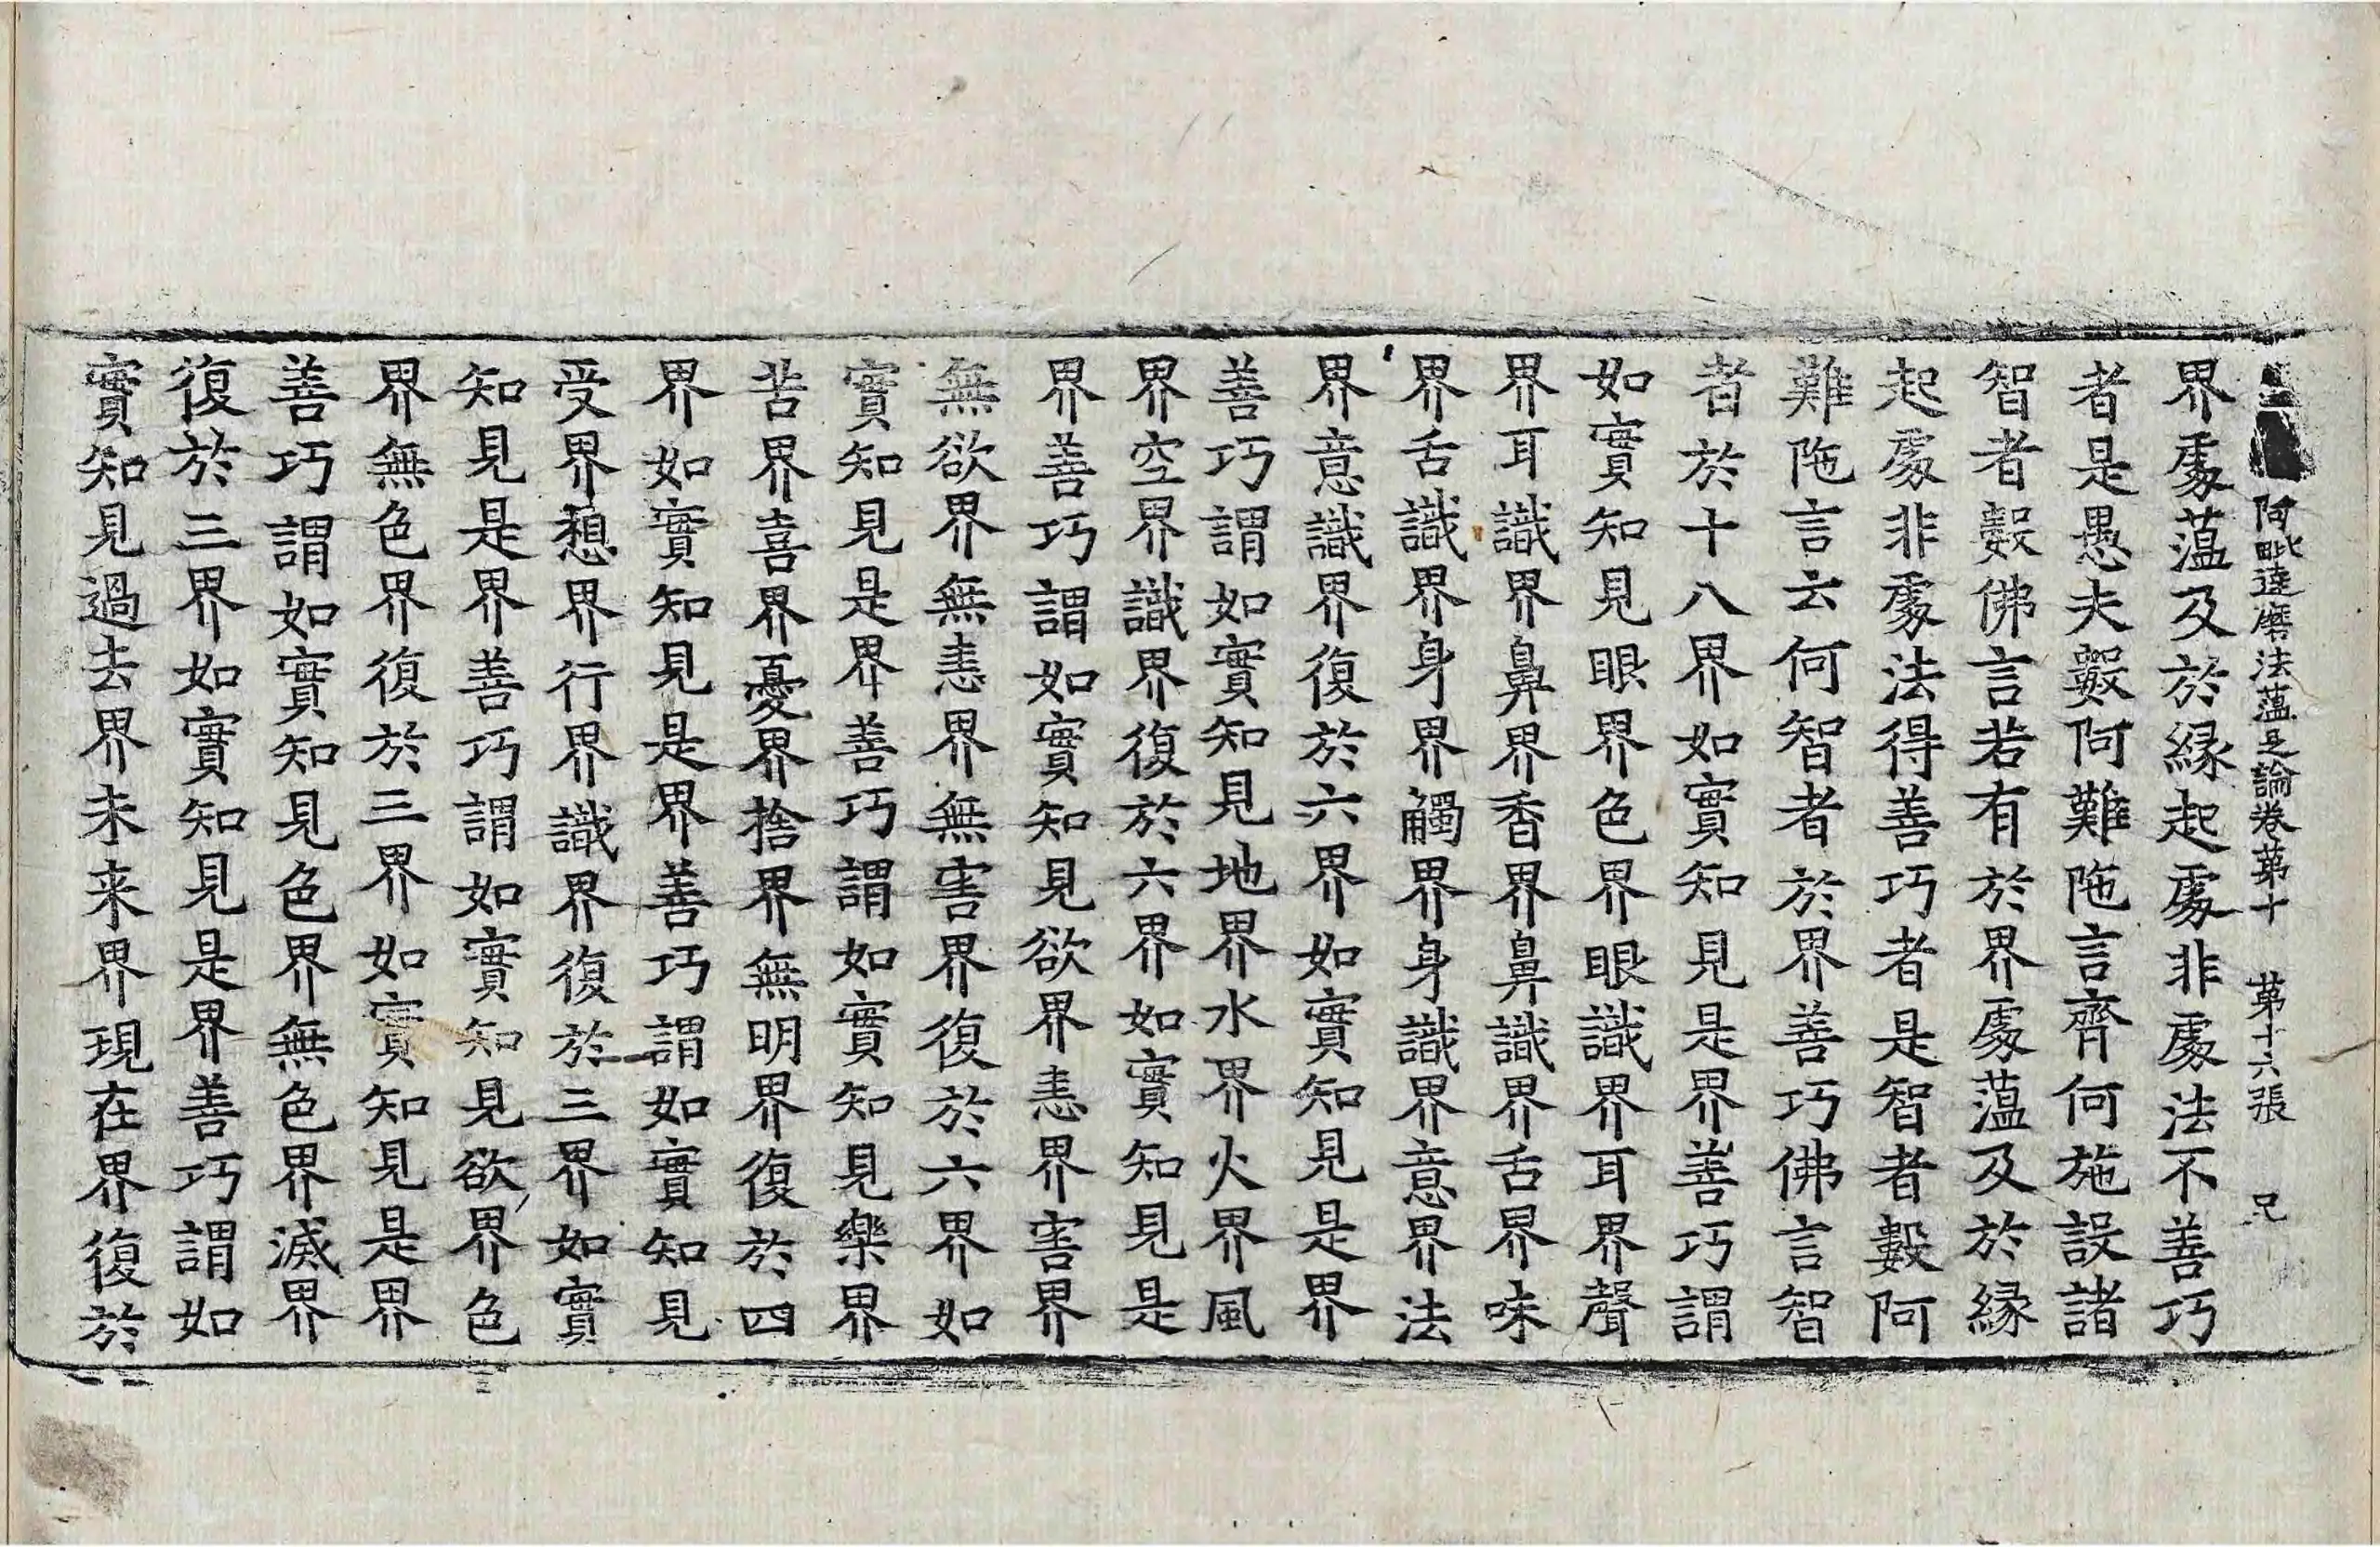 阿毗達磨法蘊足論卷第十　第十六張　兄
界處蘊及於緣起處非處法不善巧
者是愚夫數阿難陁言齊何施設諸
智者數佛言若有於界處蘊及於緣
起處非處法得善巧者是智者數阿
難陁言云何智者於界善巧佛言智
者於十八界如實知見是界善巧謂
如實知見眼界色界眼識界耳界聲
界耳識界鼻界香界鼻識界舌界味
界舌識界身界觸界身識界意界法
界意識界復於六界如實知見是界
善巧謂如實知見地界水界火界風
界空界識界復於六界如實知見是
界善巧謂如實知見欲界恚界害界
無欲界無恚界無害界復於六界如
實知見是界善巧謂如實知見樂界
苦界喜界憂界捨界無明界復於四
界如實知見是界善巧謂如實知見
受界想界行界識界復於三界如實
知見是界善巧謂如實知見欲界色
界無色界復於三界如實知見是界
善巧謂如實知見色界無色界滅界
復於三界如實知見是界善巧謂如
實知見過去界未来界現在界復於